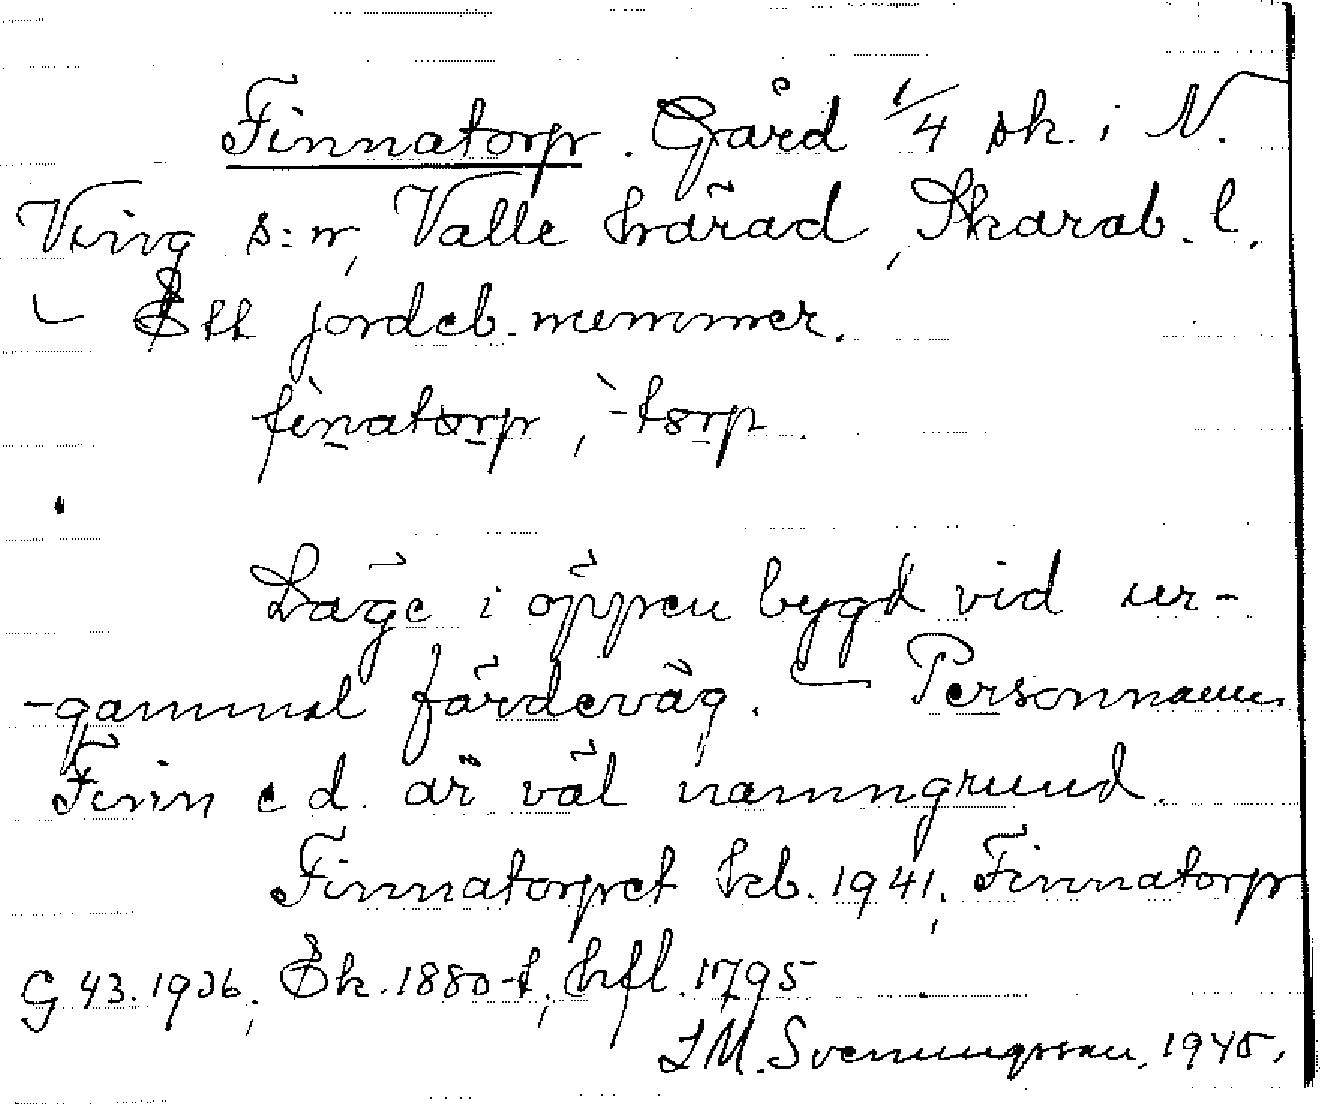 Finnatorp. Gård 1/4 sk. i N.
Ving s:n, Valle härad, Skarab. l.
Ett jordeb. nummer.
finatorp, -torp.
Läge i öppen bygd vid ur-
-gammal färdeväg. Personnamn
Finn e d. är väl namngrund.
Finnatorpet kb. 1941, Finnatorp
G 43. 1936, Ek. 1880-t, hfl. 1795
I M. Svenungsson, 1945.